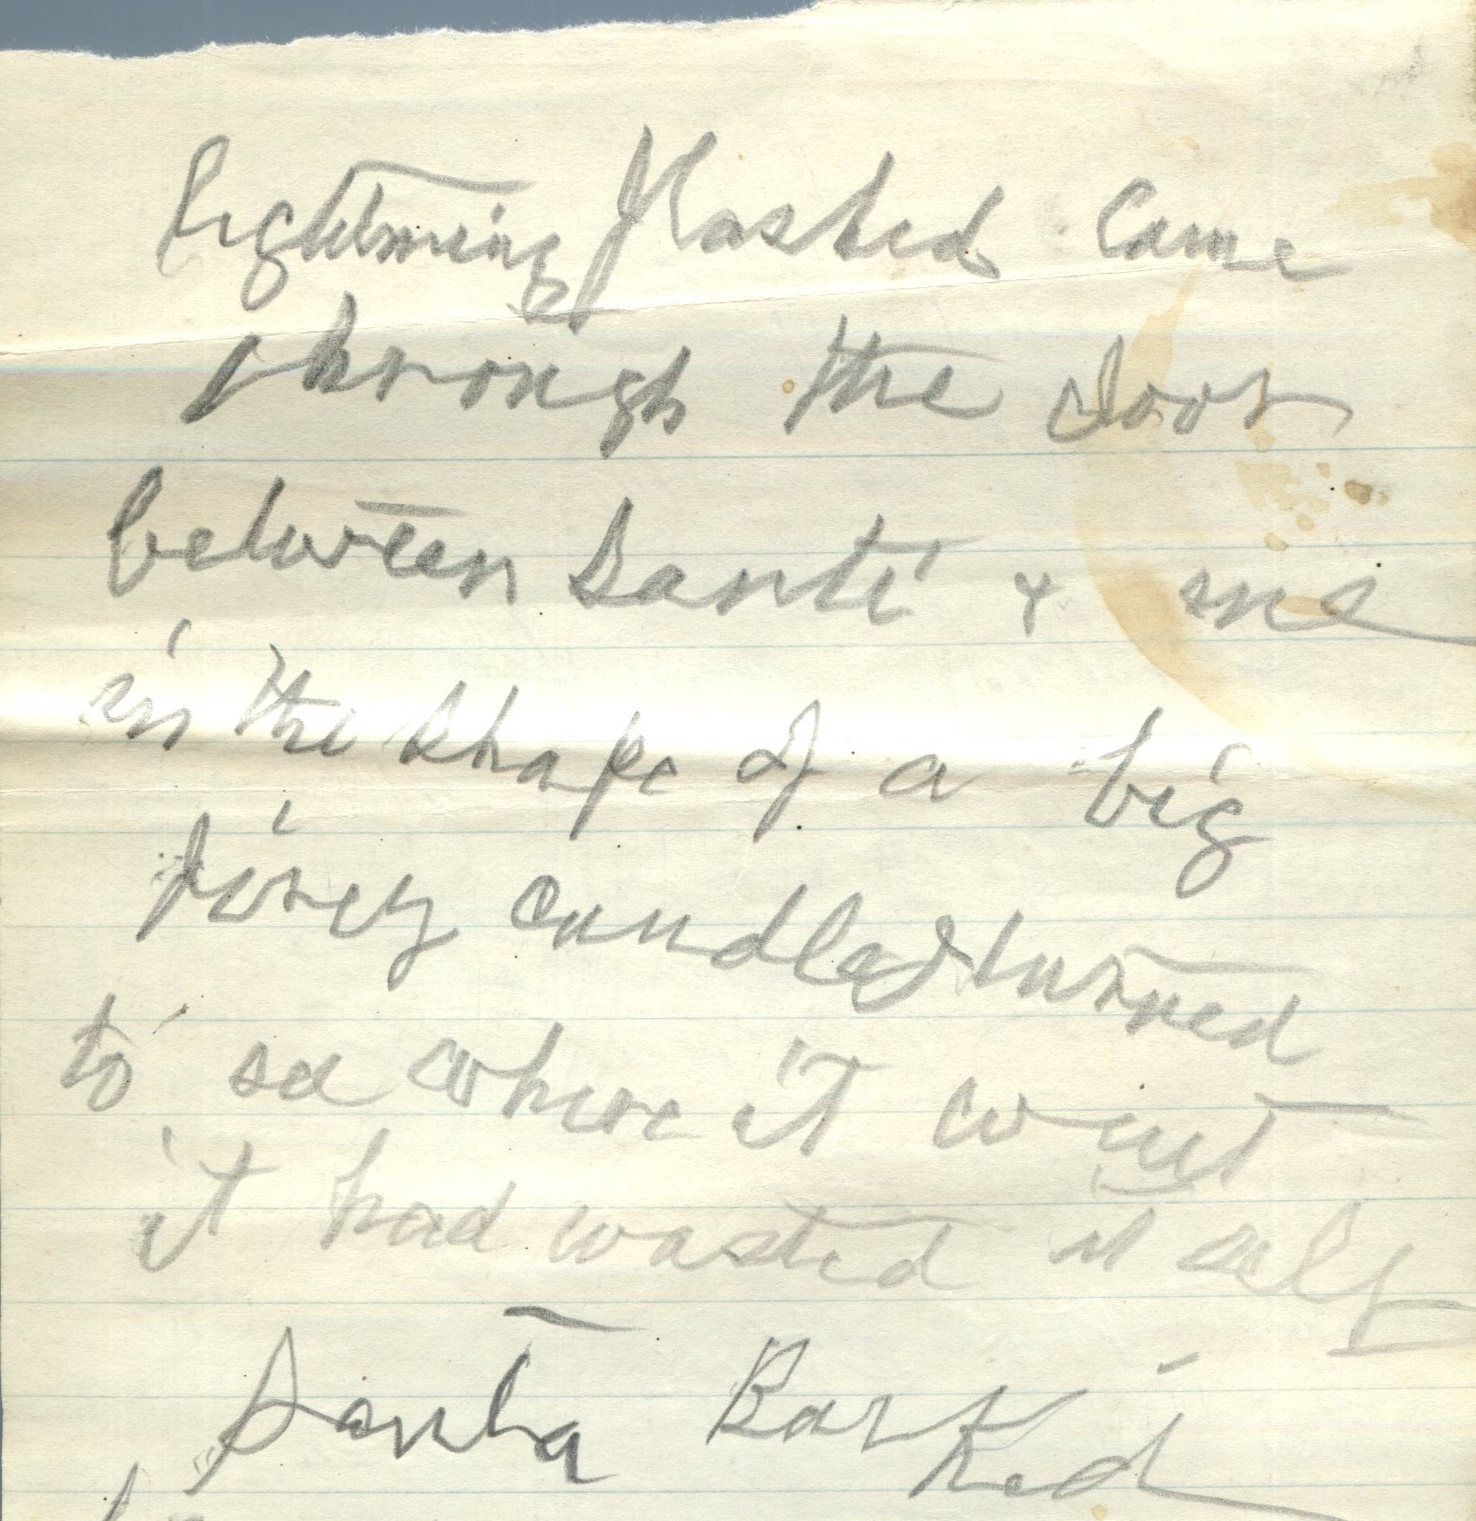 lightning flashed came
through the door
between Santi & me
in the shape of a big
firey candle & turned
to se where it went
it had wasted it self
Santa Barked